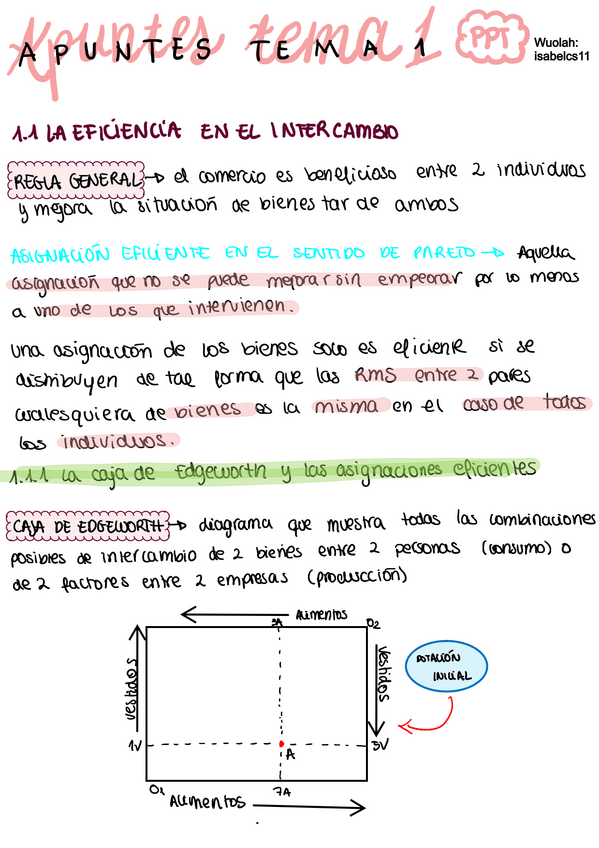 Apuntes tema 1
APUNTES TEMA 1
PPT
Wuolah:
isabelcs11
1.1 LA EFICIENCIA EN EL INTERCAMBIO
REGLA GENERAL → el comercio es beneficioso entre 2 individuos
y mejora la situación de bienestar de ambos
ASIGNACIÓN EFICIENTE EN EL SENTIDO DE PARETO → Aquella
asignación que no se puede mejorar sin empeorar por lo menos
a uno de los que intervienen.
Una asignación de los bienes solo es eficiente si se
distribuyen de tal forma que las RMS entre 2 pares
cualesquiera de bienes es la misma en el caso de todos
los individuos.
1.1.1 La caja de Edgeworth y las asignaciones eficientes
CAJA DE EDGEWORTH → diagrama que muestra todas las combinaciones
posibles de intercambio de 2 bienes entre 2 personas (consumo) o
de 2 factores entre 2 empresas (producción)
Alimentos
3A
O2
Vestidos
Vestidos
DOTACIÓN
INICIAL
1V
3V
A
O1
7A
Alimentos